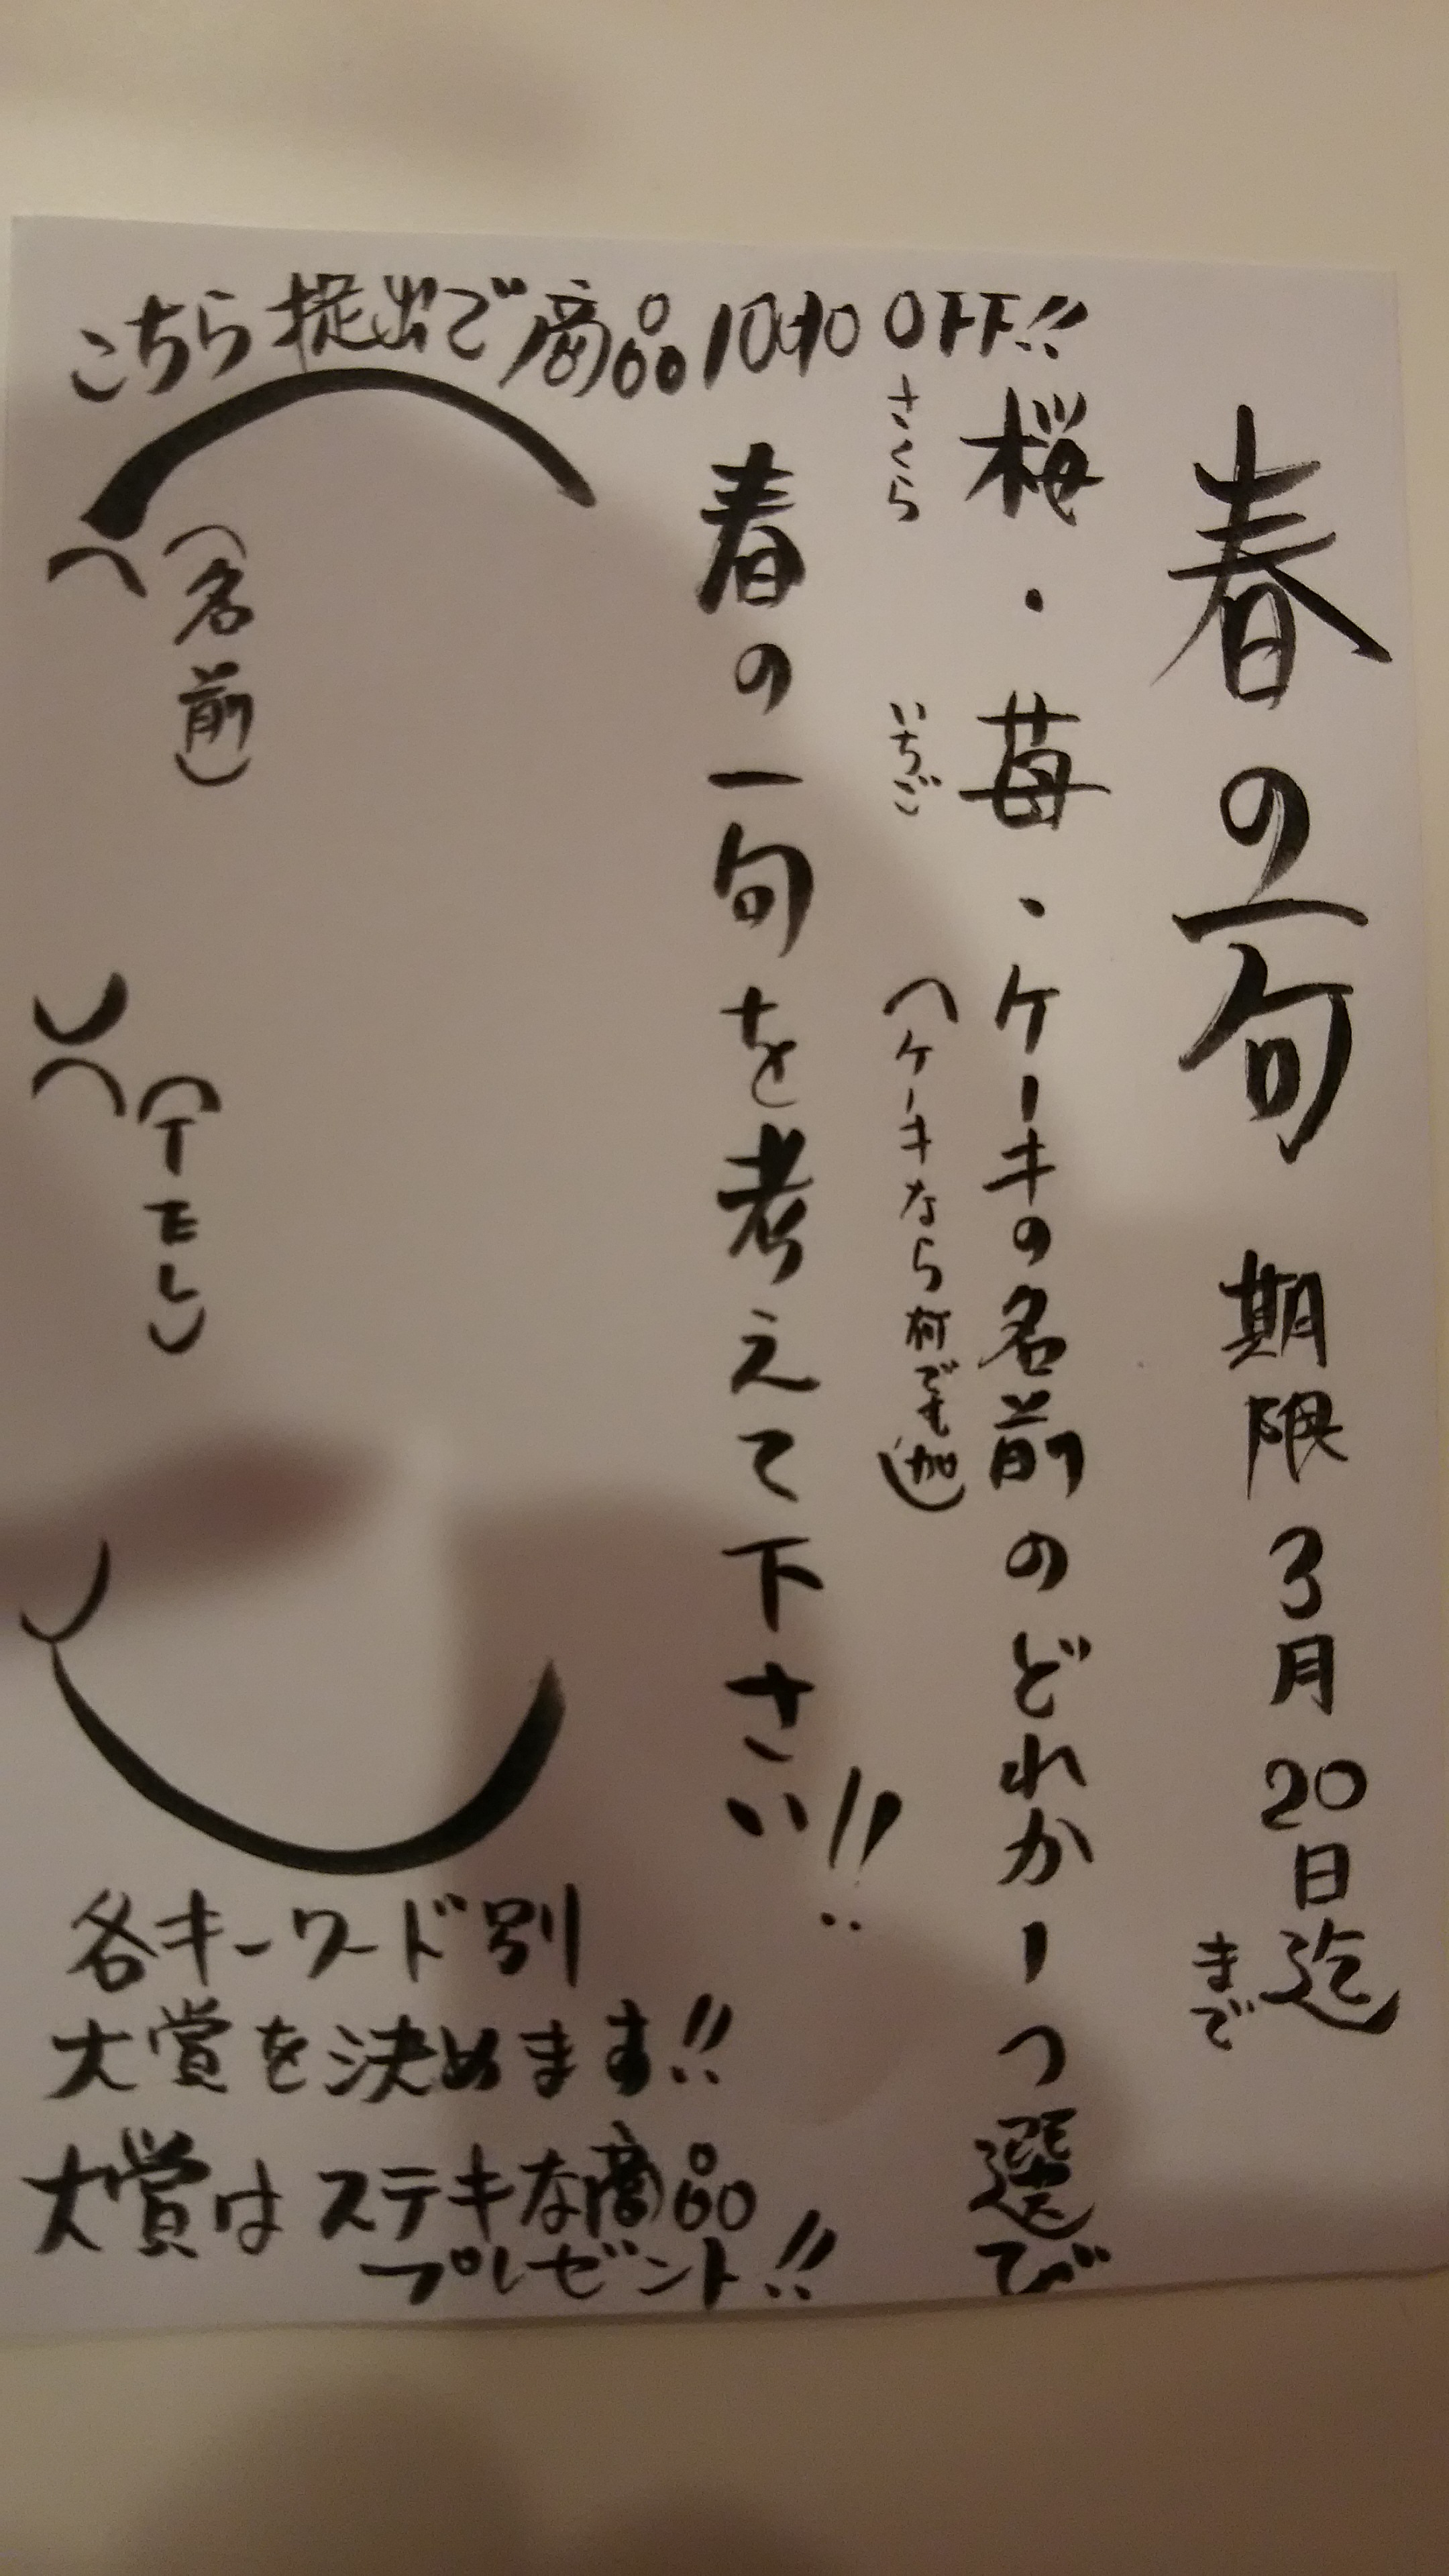 春の一句 期限3月20日迄
まで
桜・苺・ケーキの名前のどれか一つ選び
さくら いちご (ケーキなら何でも可)
春の一句を考えて下さい!!
こちら提出で商品10%OFF!!
(名前)
(TEL)
各キーワード別
大賞を決めます!!
大賞はステキな商品
プレゼント!!